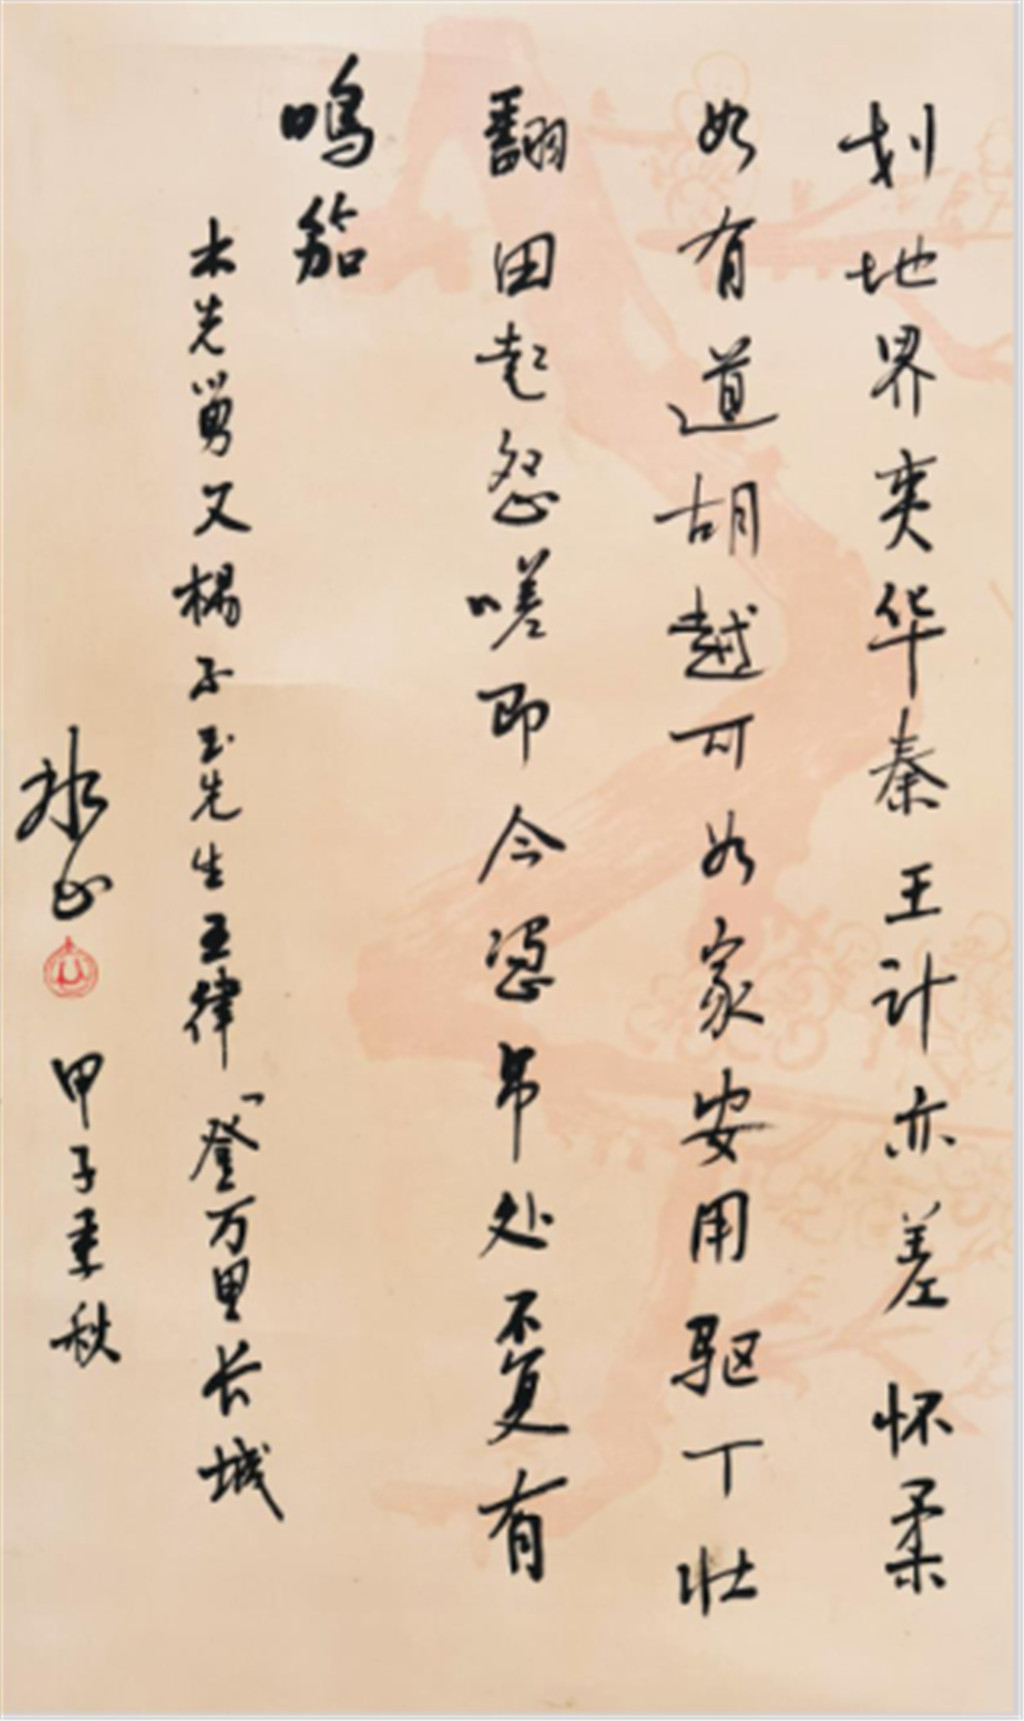 划地界夷华秦王计亦差怀柔
如有道胡越可如家安用驱丁壮
翻因起怨嗟即今凭吊处不复有
鸣笳
木先舅父杨子玉先生五律「登万里长城
冰心
甲子季秋